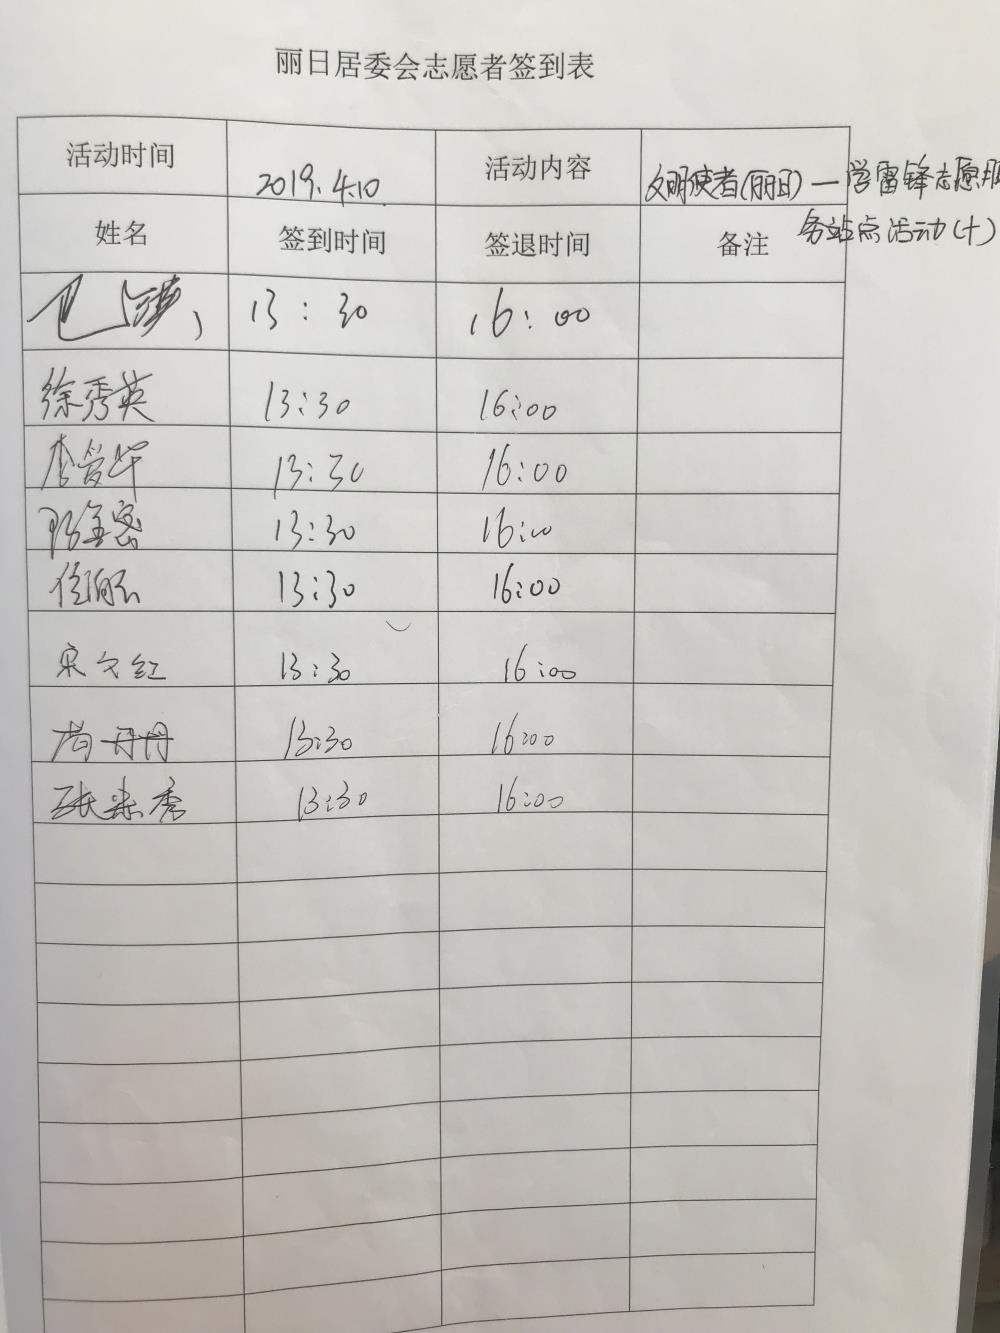 丽日居委会志愿者签到表
活动时间 2019.4.10 活动内容 文明使者(丽日)—学雷锋志愿服
务站点活动(十)
姓名 签到时间 签退时间 备注
13:30 16:00
徐秀英 13:30 16:00
李爱华 13:30 16:00
13:30 16:00
13:30 16:00
宋文红 13:30 16:00
尚丹丹 13:30 16:00
张来秀 13:30 16:00